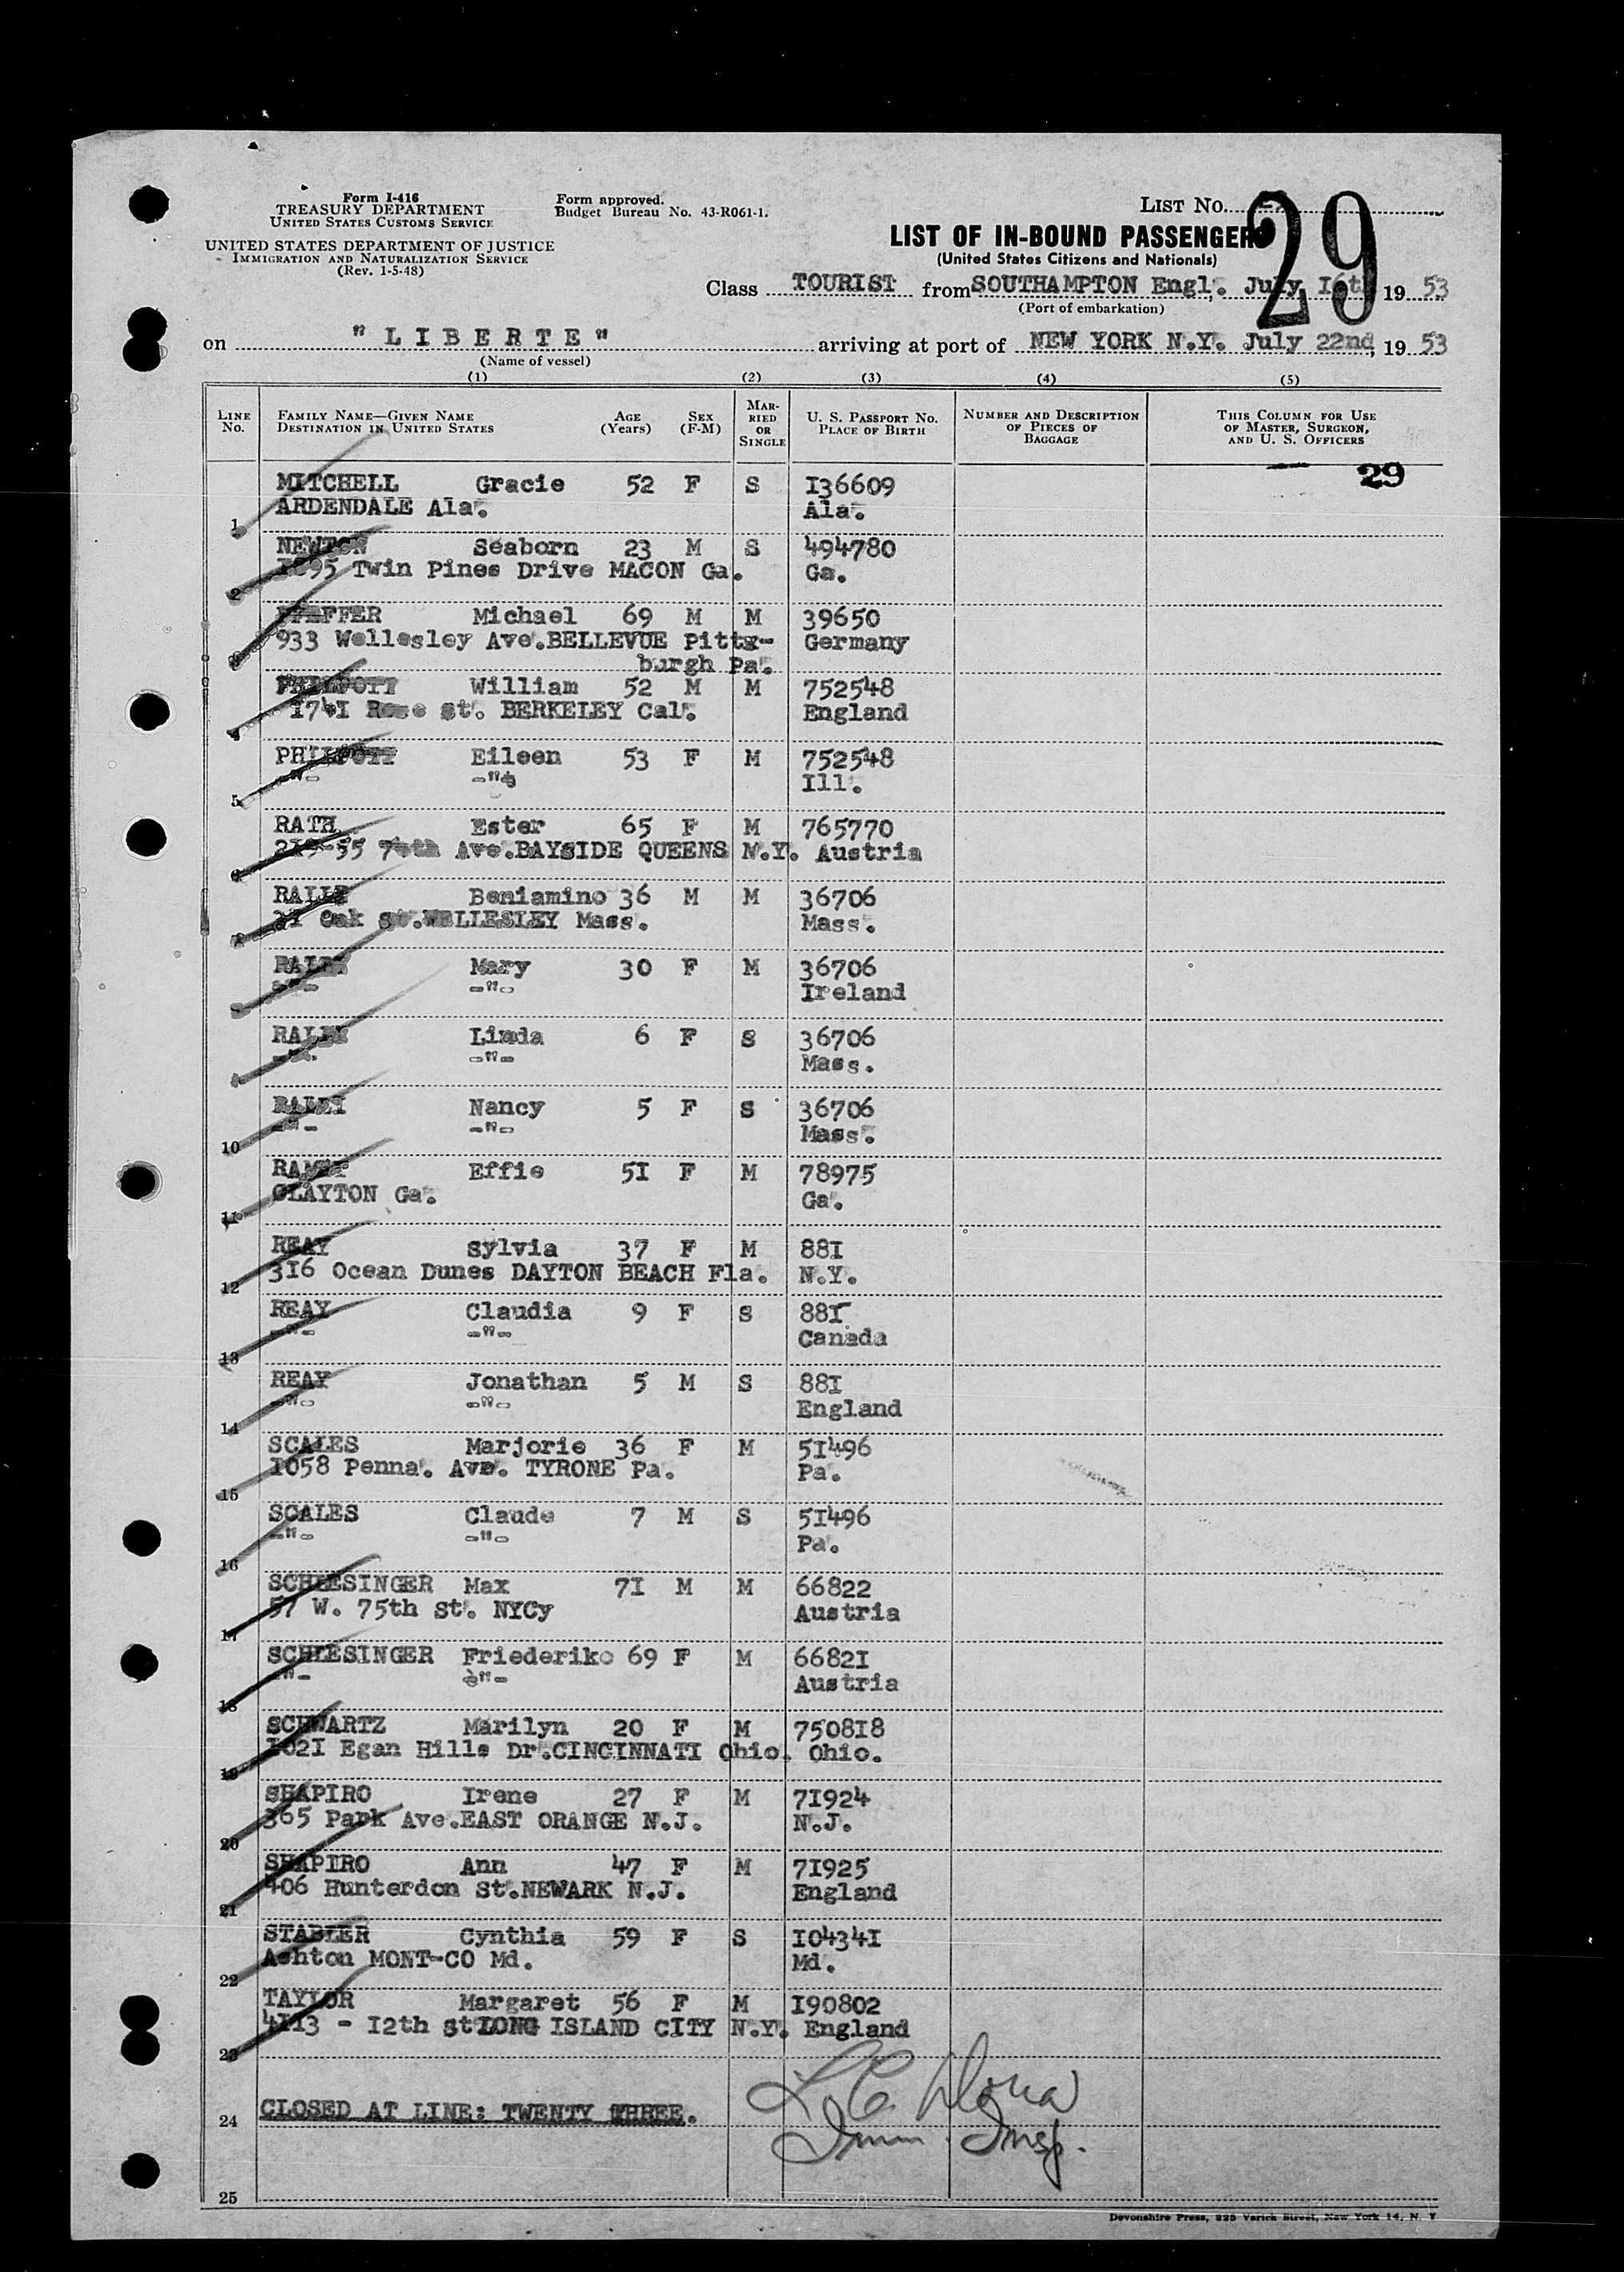 Form I-416
TREASURY DEPARTMENT
UNITED STATES CUSTOMS SERVICE
UNITED STATES DEPARTMENT OF JUSTICE
IMMIGRATION AND NATURALIZATION SERVICE
(Rev. 1-5-48)
Form approved.
Budget Bureau No. 43-R061-1.
LIST NO. 29
LIST OF IN-BOUND PASSENGERS
(United States Citizens and Nationals)
Class TOURIST from SOUTHAMPTON Engl. July 16th 19 53
(Port of embarkation)
on "LIBERTE" arriving at port of NEW YORK N.Y. July 22nd, 19 53
(Name of vessel)
(1) (2) (3) (4) (5)
LINE No. FAMILY NAME—GIVEN NAME DESTINATION IN UNITED STATES AGE (Years) SEX (F-M) MARRIED OR SINGLE U. S. PASSPORT NO. PLACE OF BIRTH NUMBER AND DESCRIPTION OF PIECES OF BAGGAGE THIS COLUMN FOR USE OF MASTER, SURGEON, AND U. S. OFFICERS
29
MITCHELL Gracie 52 F S I36609
1 ARDENDALE Ala. Ala.
NEWTON Seaborn 23 M S 494780
2 Twin Pines Drive MACON Ga. Ga.
PFAFFER Michael 69 M M 39650
3 933 Wellesley Ave.BELLEVUE Pittg- Germany
burgh Pa.
PHILPOTT William 52 M M 752548
4 I74I Rose st. BERKELEY Cal. England
PHILPOTT Eileen 53 F M 752548
5 -"- -"- Ill.
RATH Ester 65 F M 765770
6 Ave.BAYSIDE QUEENS N.Y. Austria
Beniamino 36 M M 36706
7 Oak st.WELLESLEY Mass. Mass.
Mary 30 F M 36706
8 -"- -"- Ireland
Linda 6 F S 36706
9 -"- -"- Mass.
Nancy 5 F S 36706
10 -"- -"- Mass.
Effie 5I F M 78975
11 CLAYTON Ga. Ga.
REAY sylvia 37 F M 88I
12 3I6 Ocean Dunes DAYTON BEACH Fla. N.Y.
REAY Claudia 9 F S 88I
13 -"- -"- Canada
REAY Jonathan 5 M S 88I
14 -"- -"- England
SCALES Marjorie 36 F M 5I496
15 I058 Penna. Ave. TYRONE Pa. Pa.
SCALES Claude 7 M S 5I496
16 -"- -"- Pa.
SCHLESINGER Max 7I M M 66822
17 57 W. 75th st. NYCy Austria
SCHLESINGER Friederike 69 F M 6682I
18 -"- -"- Austria
SCHWARTZ Marilyn 20 F M 7508I8
19 I02I Egan Hills Dr.CINCINNATI Ohio. Ohio.
SHAPIRO Irene 27 F M 7I924
20 365 Park Ave.EAST ORANGE N.J. N.J.
SHAPIRO Ann 47 F M 7I925
21 406 Hunterdon st.NEWARK N.J. England
STABLER Cynthia 59 F S I0434I
22 Ashton MONT-CO Md. Md.
TAYLOR Margaret 56 F M I90802
23 4II3 - I2th st LONG ISLAND CITY N.Y. England
24 CLOSED AT LINE: TWENTY THREE.
Imm. Insp.
25
Devonshire Press, 225 Varick Street, New York 14, N. Y.